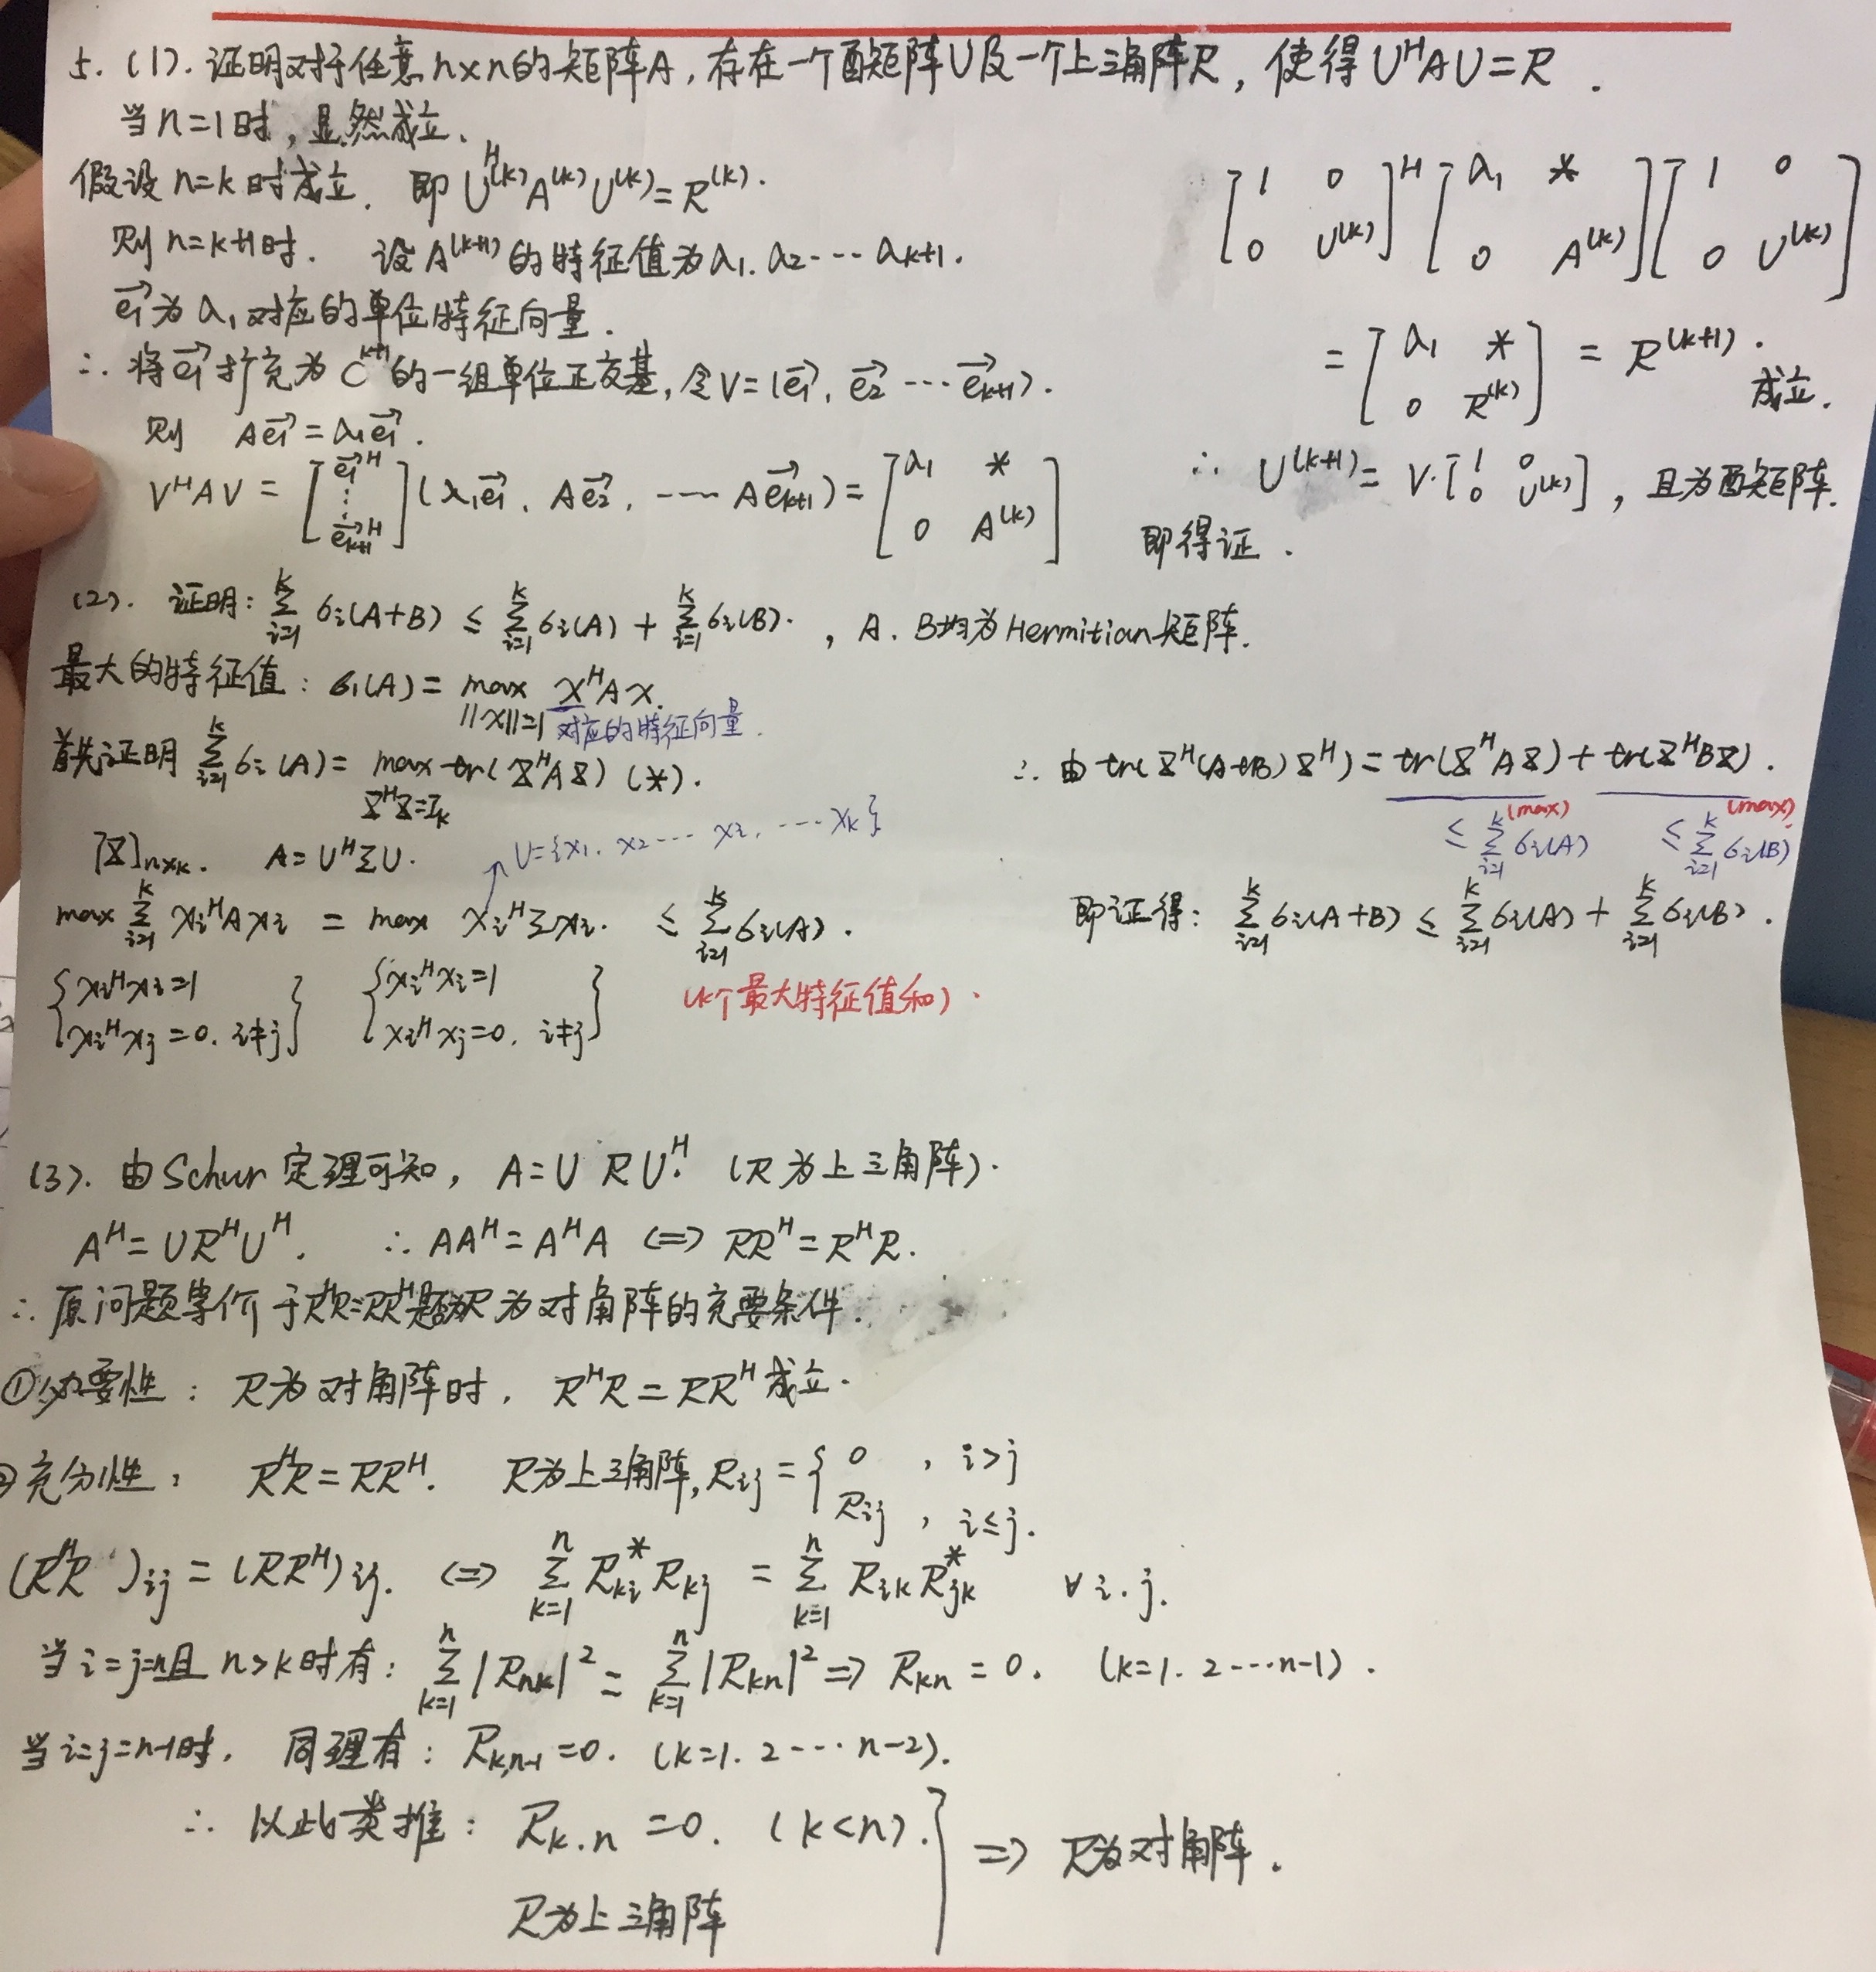 5. (1). 证明对于任意n×n的矩阵A, 存在一个酉矩阵U及一个上三角阵R, 使得 U^H A U = R .
当 n=1时, 显然成立.
假设 n=k 时成立. 即 U^{H(k)} A^{(k)} U^{(k)} = R^{(k)}.
则 n=k+1时. 设 A^{(k+1)} 的特征值为 λ1. λ2 ···· λk+1.
e1→ 为 λ1 对应的单位特征向量.
∴ 将 e1→ 扩充为 C^{k+1} 的一组单位正交基, 令 V = (e1→, e2→ ··· ek+1→).
则 A e1→ = λ1 e1→.
V^H A V = [e1→^H ⋮ ek+1→^H] (λ1 e1→, A e2→, ---- A ek+1→) = [λ1 * ; 0 A^{(k)}]
[1 0 ; 0 U^{(k)}]^H [λ1 * ; 0 A^{(k)}] [1 0 ; 0 U^{(k)}]
= [λ1 * ; 0 R^{(k)}] = R^{(k+1)}. 成立.
∴ U^{(k+1)} = V·[1 0 ; 0 U^{(k)}], 且为酉矩阵.
即得证 .
(2). 证明: ∑_{i=1}^k 6i(A+B) ≤ ∑_{i=1}^k 6i(A) + ∑_{i=1}^k 6i(B). , A. B均为 Hermitian 矩阵.
最大的特征值: 61(A) = max_{||x||=1} x^H A x.
对应的特征向量.
首先证明 ∑_{i=1}^k 6i(A) = max_{X^H X = I_k} tr(X^H A X) (*).
[X]n×k. A = U^H Σ U.
U = {x1. x2 --- xi. ---- xk}
max ∑_{i=1}^k xi^H A xi = max xi^H Σ xi. ≤ ∑_{i=1}^k 6i(A).
{xi^H xi = 1 {xi^H xi = 1
xi^H xj = 0. i≠j} xi^H xj = 0. i≠j}
(k个最大特征值和).
∴ 由 tr(X^H (A+B) X^H) = tr(X^H A X) + tr(X^H B X).
(max) (max)
≤ ∑_{i=1}^k 6i(A) ≤ ∑_{i=1}^k 6i(B)
即证得: ∑_{i=1}^k 6i(A+B) ≤ ∑_{i=1}^k 6i(A) + ∑_{i=1}^k 6i(B).
(3). 由 Schur 定理可知, A = U R U^H. (R 为上三角阵).
A^H = U R^H U^H. ∴ AA^H = A^H A <=> RR^H = R^H R.
∴ 原问题等价于 R^H R = RR^H 是 R 为对角阵的充要条件.
① 必要性: R为对角阵时, R^H R = RR^H 成立.
② 充分性: R^H R = RR^H. R为上三角阵, Rij = { 0 , i>j
Rij , i≤j.
(R^H R)ij = (RR^H)ij. <=> ∑_{k=1}^n R*ki Rkj = ∑_{k=1}^n Rik R*jk ∀ i. j.
当 i=j=n且 n>k时有: ∑_{k=1}^n |Rnk|² = ∑_{k=1}^n |Rkn|² => Rkn = 0. (k=1. 2 ···· n-1).
当 i=j=n-1时. 同理有: Rk,n-1 = 0. (k=1. 2 ···· n-2).
∴ 以此类推: Rk.n = 0. (k<n). } => R为对角阵.
R为上三角阵